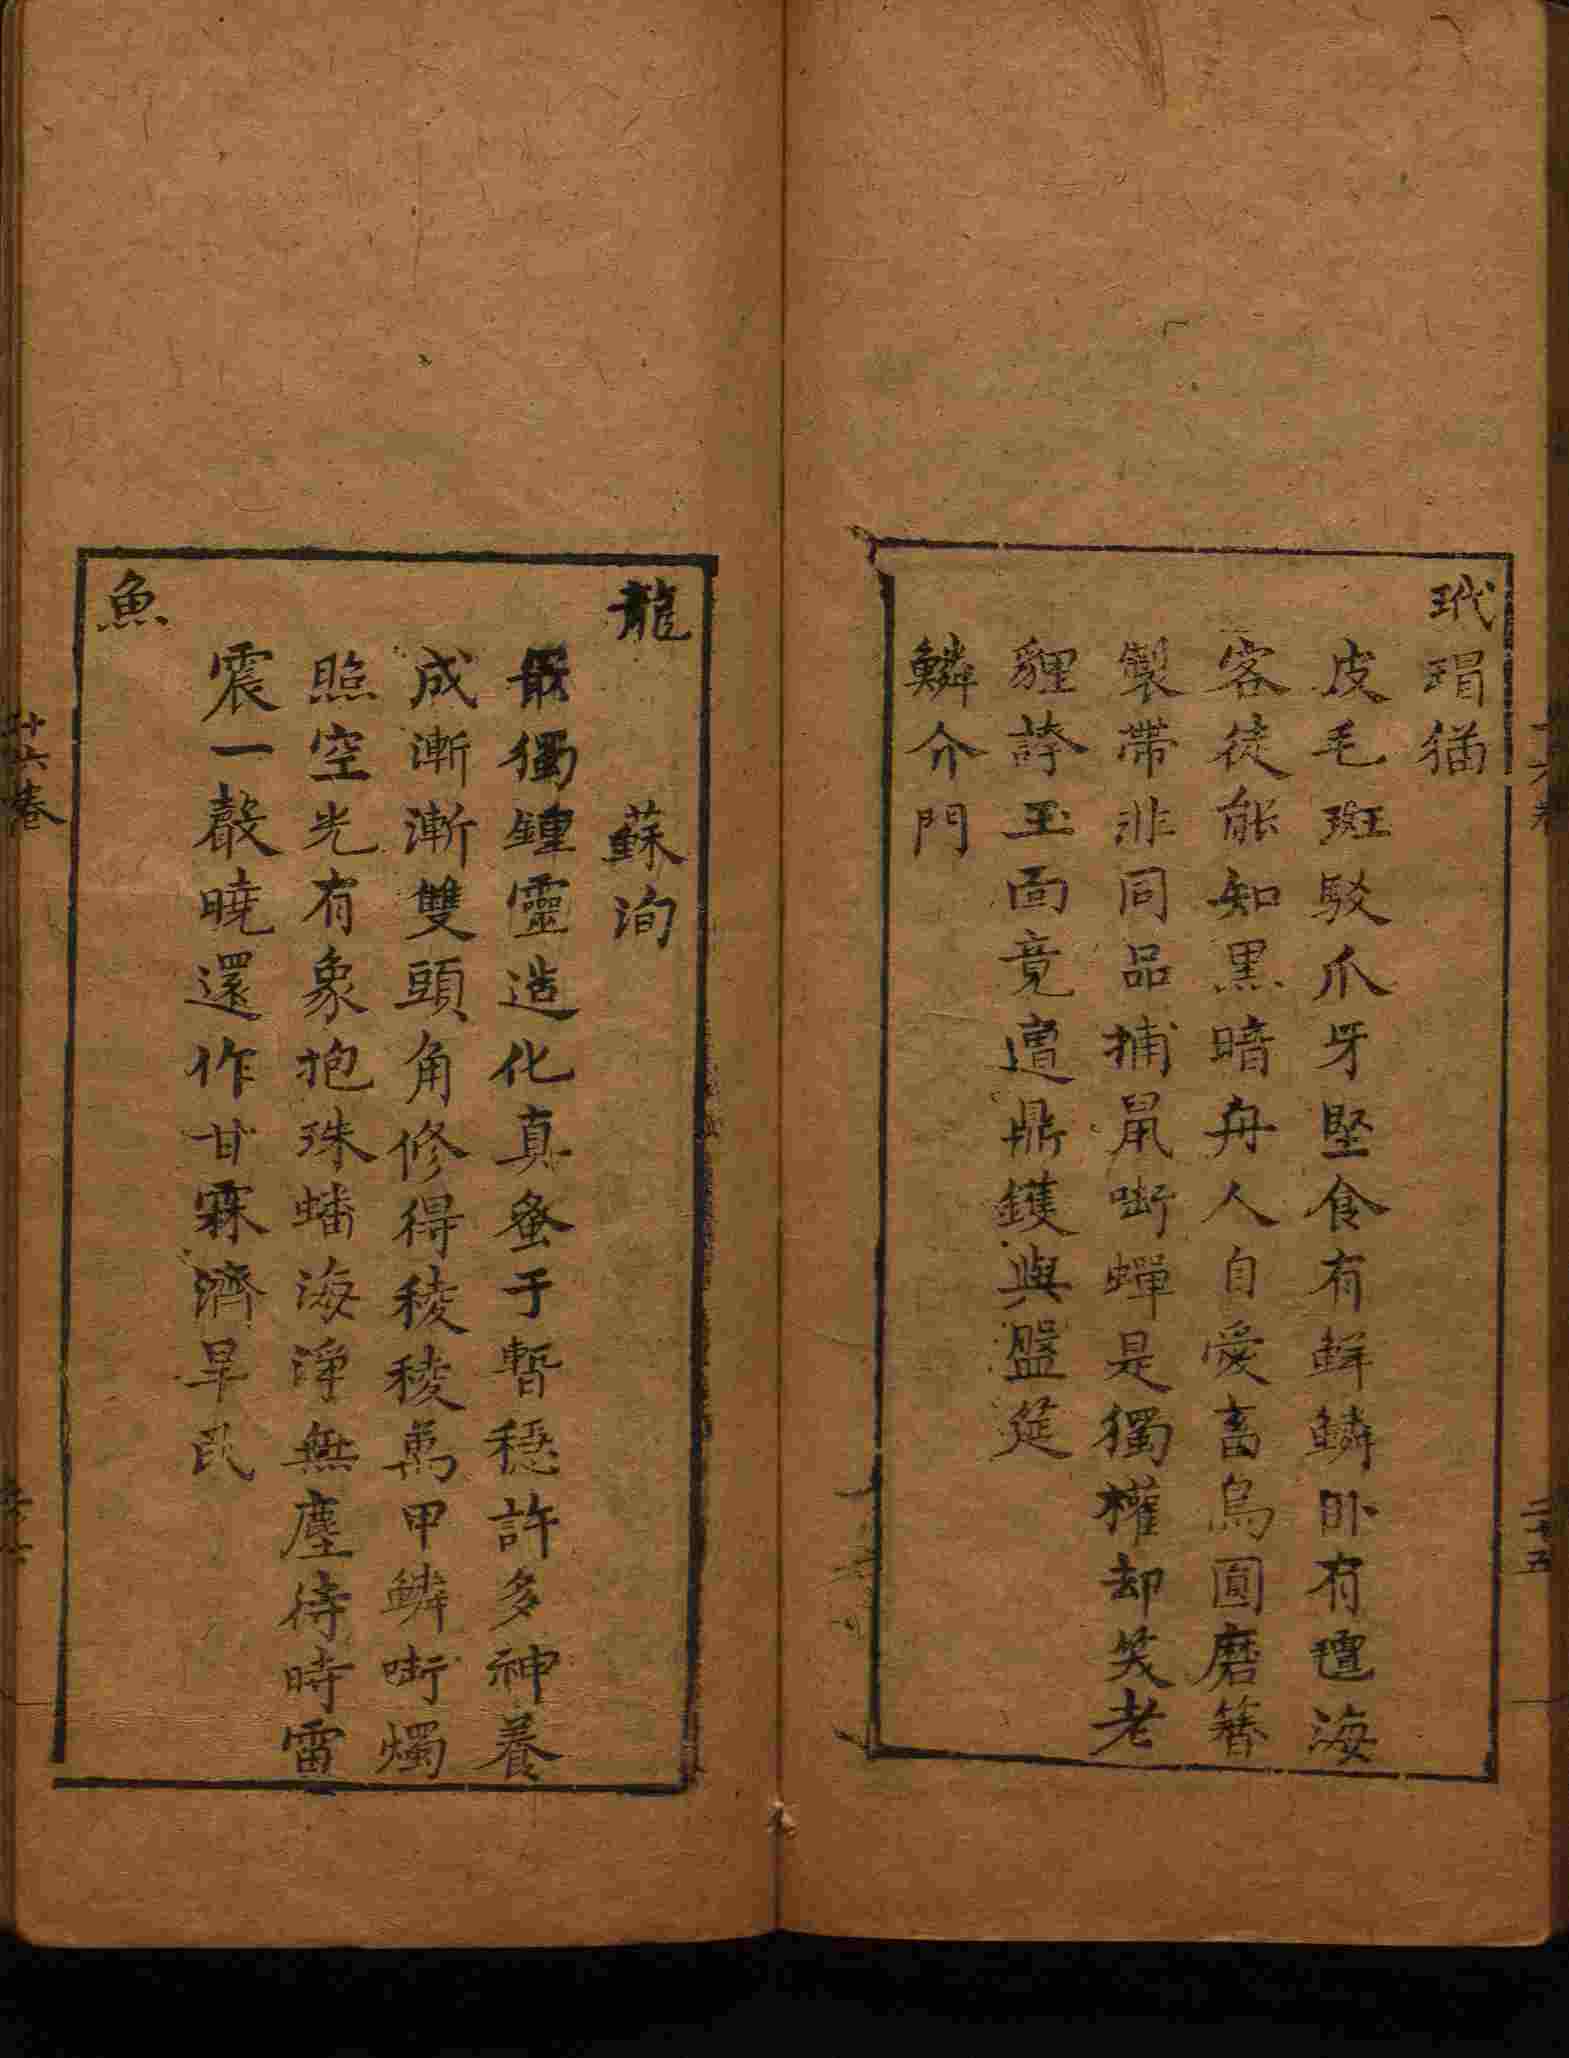 玳瑁猫
皮毛斑駁爪牙堅食有鮮鱗卧有氊海
客徒能知黒暗舟人自愛畜烏圓磨簪
製帶非同品捕鼠啣蟬是獨權却笑老
貍誇玉面竟遭鼎鑊與盤筵
鱗介門
龍　蘇洵
最獨鍾靈造化真蚤于暫穩許多神養
成漸漸雙頭角修得稜稜萬甲鱗啣燭
照空光有象抱珠蟠海淨無塵待時雷
震一聲曉還作甘霖濟旱民
魚
十六卷
二十五